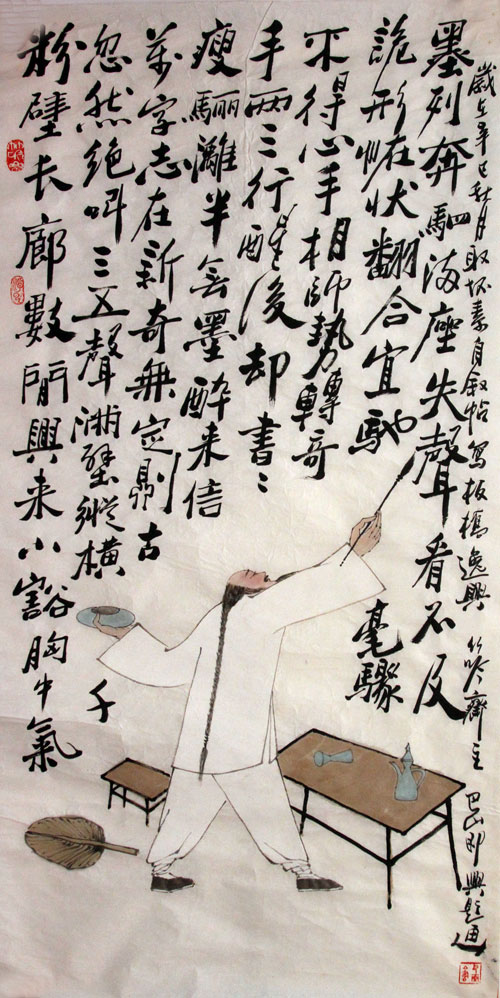 粉壁长廊數間興来小豁胸中氣
忽然絶叫三五聲满壁縱横千
萬字志在新奇無定則古
瘦驪灕半無墨醉来信
手兩三行醒後却書〻
不得心手相師勢轉奇
詭形恠状翻合宜馳
毫驟
墨列奔駟满座失聲看不及
歲在辛巳秋月取怀素自叙帖寫板橋逸興 竹吟齋主 巴山即興題画